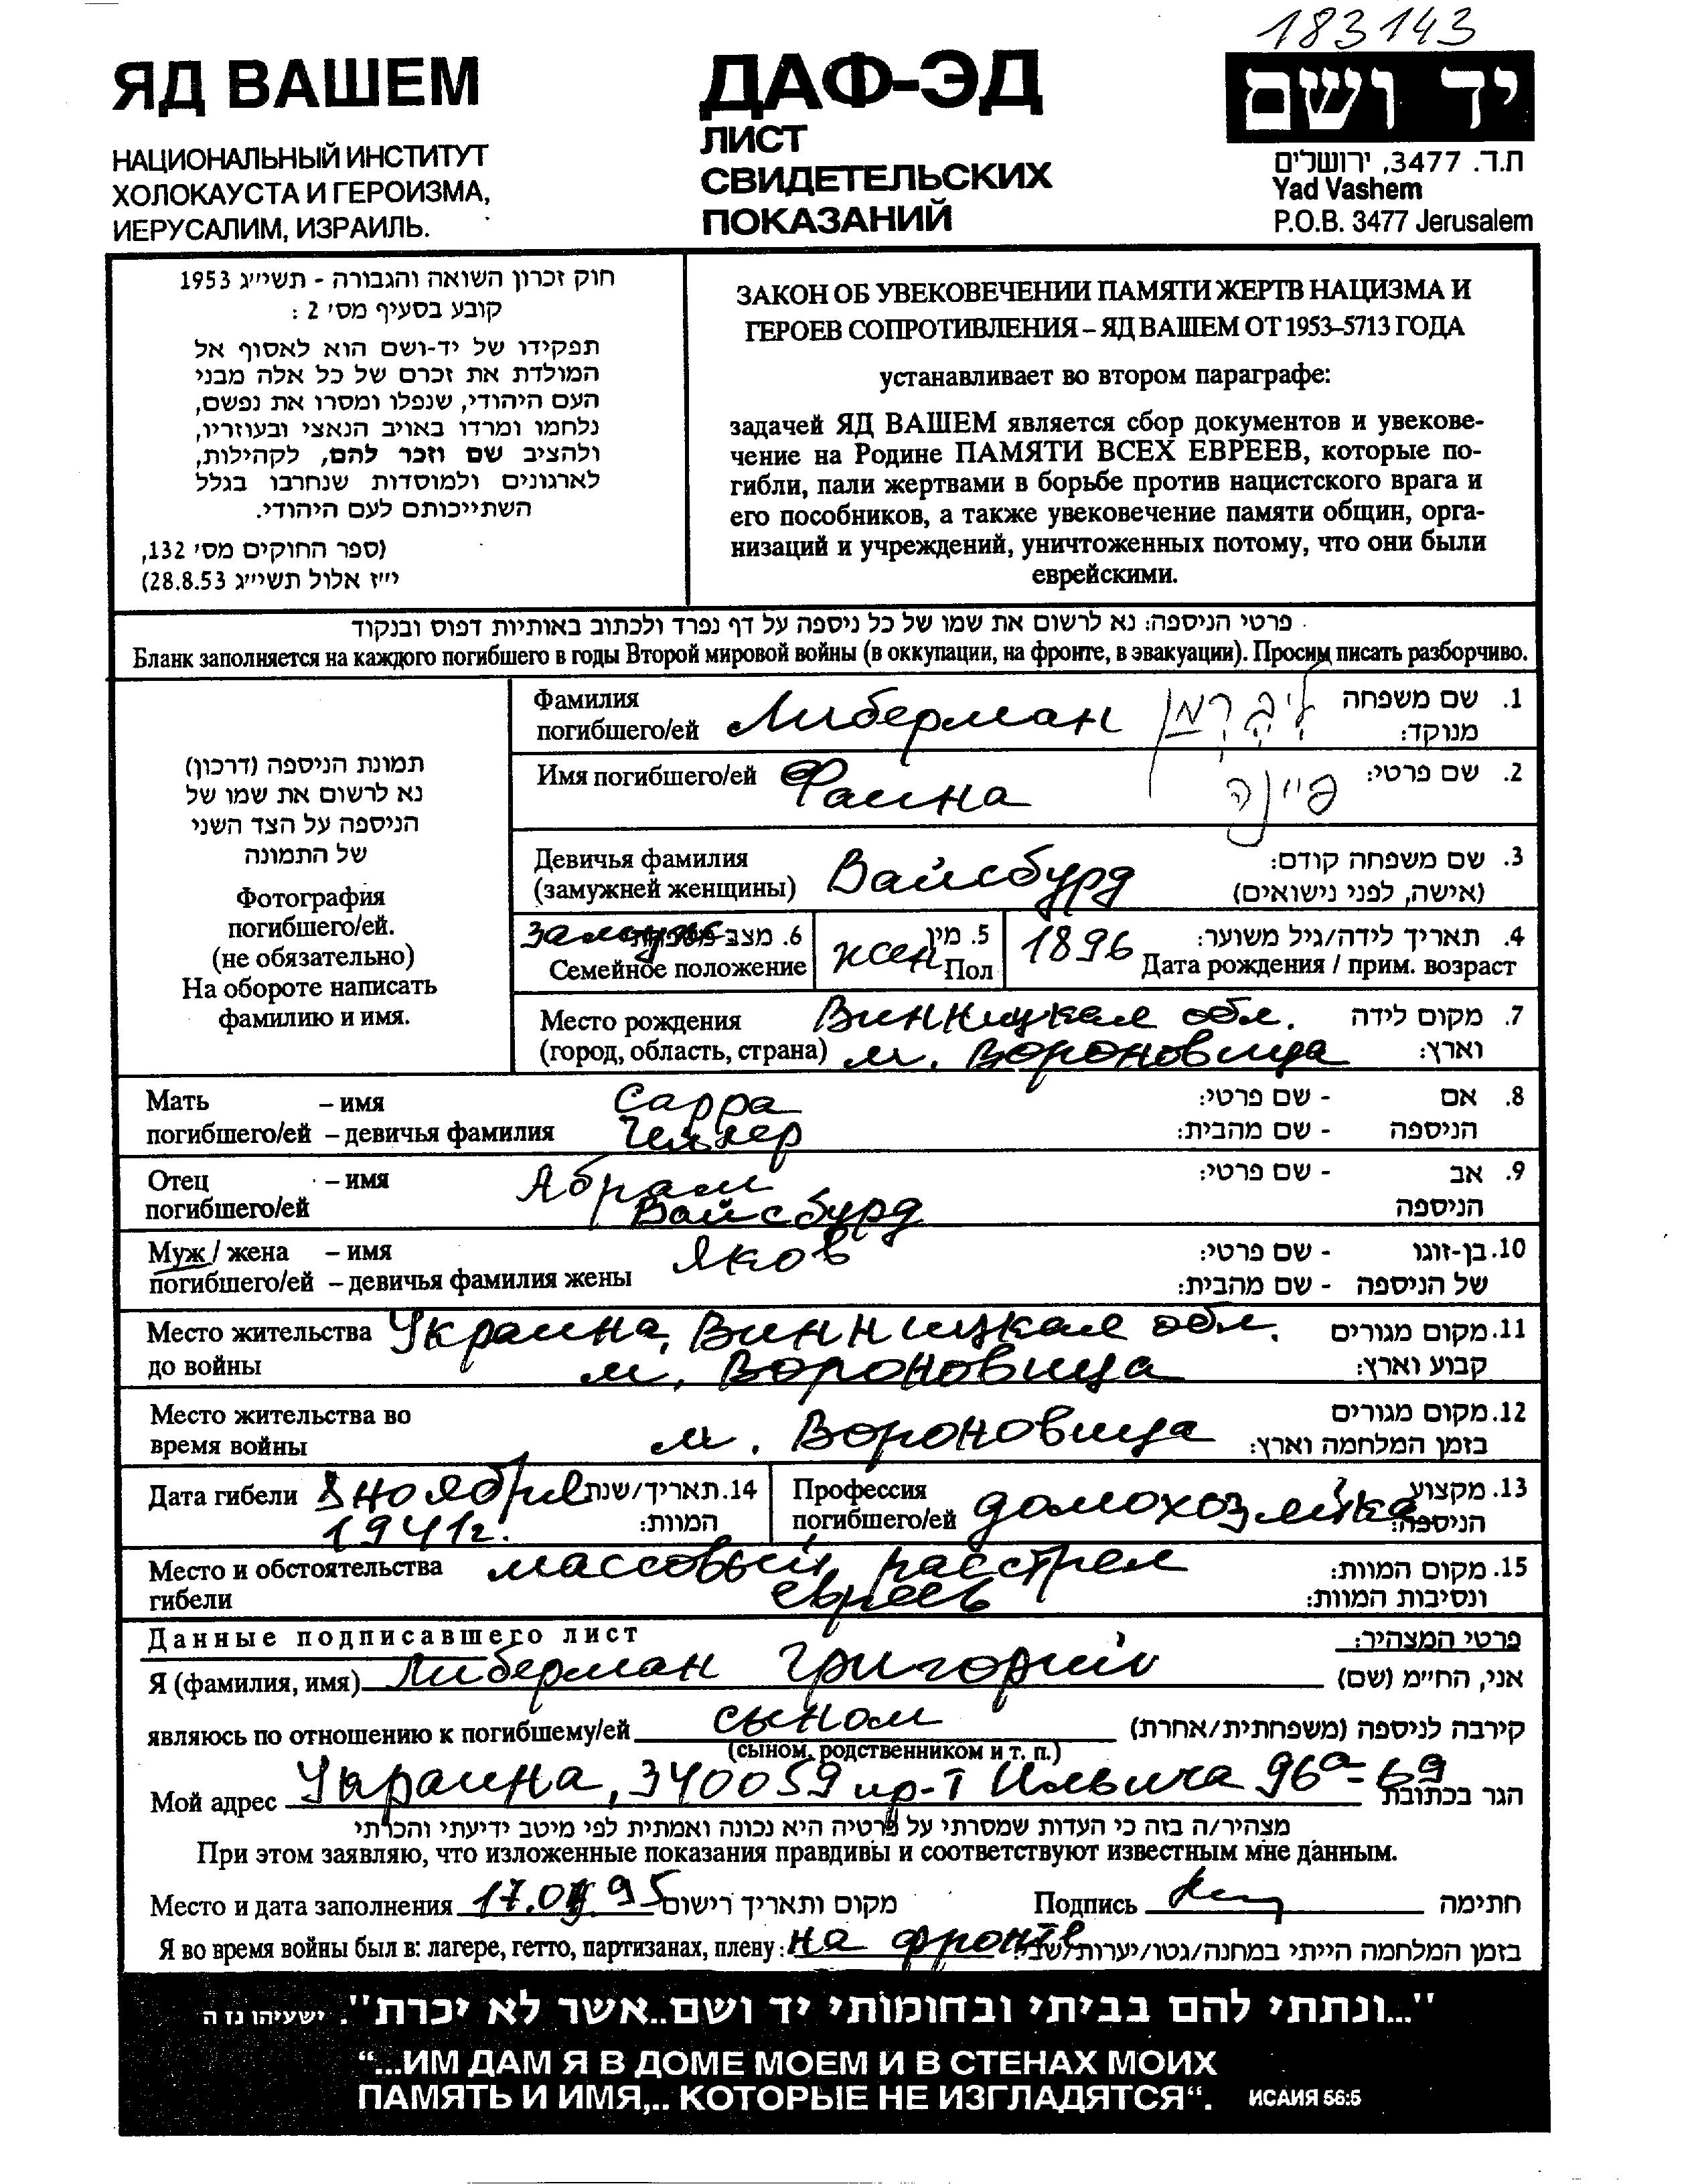 183143
ЯД ВАШЕМ
НАЦИОНАЛЬНЫЙ ИНСТИТУТ
ХОЛОКАУСТА И ГЕРОИЗМА,
ИЕРУСАЛИМ, ИЗРАИЛЬ.
ДАФ-ЭД
ЛИСТ
СВИДЕТЕЛЬСКИХ
ПОКАЗАНИЙ
יד ושם
ת.ד. 3477, ירושלים
Yad Vashem
P.O.B. 3477 Jerusalem
חוק זכרון השואה והגבורה - תשי״ג 1953
קובע בסעיף מס׳ 2 :
תפקידו של יד-ושם הוא לאסוף אל
המולדת את זכרם של כל אלה מבני
העם היהודי, שנפלו ומסרו את נפשם,
נלחמו ומרדו באויב הנאצי ובעוזריו,
ולהציב שם וזכר להם, לקהילות,
לארגונים ולמוסדות שנחרבו בגלל
השתייכותם לעם היהודי.
(ספר החוקים מס׳ 132,
י״ז אלול תשי״ג 28.8.53)
ЗАКОН ОБ УВЕКОВЕЧЕНИИ ПАМЯТИ ЖЕРТВ НАЦИЗМА И
ГЕРОЕВ СОПРОТИВЛЕНИЯ – ЯД ВАШЕМ ОТ 1953–5713 ГОДА
устанавливает во втором параграфе:
задачей ЯД ВАШЕМ является сбор документов и увекове-
чение на Родине ПАМЯТИ ВСЕХ ЕВРЕЕВ, которые по-
гибли, пали жертвами в борьбе против нацистского врага и
его пособников, а также увековечение памяти общин, орга-
низаций и учреждений, уничтоженных потому, что они были
еврейскими.
פרטי הניספה: נא לרשום את שמו של כל ניספה על דף נפרד ולכתוב באותיות דפוס ובנקוד
Бланк заполняется на каждого погибшего в годы Второй мировой войны (в оккупации, на фронте, в эвакуации). Просим писать разборчиво.
תמונת הניספה (דרכון)
נא לרשום את שמו של
הניספה על הצד השני
של התמונה
Фотография
погибшего/ей.
(не обязательно)
На обороте написать
фамилию и имя.
Фамилия
погибшего/ей Либерман ליברמן
1. שם משפחה
מנוקד:
Имя погибшего/ей Фаина פיינה 2. שם פרטי:
Девичья фамилия
(замужней женщины) Вайсбурд
3. שם משפחה קודם:
(אישה, לפני נישואים)
замуж 6. מצב משפחתי
Семейное положение
жен 5. מין
Пол
1896 4. תאריך לידה/גיל משוער:
Дата рождения / прим. возраст
Место рождения Винницкая обл. 7. מקום לידה
(город, область, страна) м. Вороновица וארץ:
Мать – имя Сарра 8. אם - שם פרטי:
погибшего/ей – девичья фамилия הניספה - שם מהבית:
Отец – имя Абрам 9. אב - שם פרטי:
погибшего/ей Вайсбурд הניספה
Муж / жена – имя Яков 10. בן-זוגו - שם פרטי:
погибшего/ей – девичья фамилия жены של הניספה - שם מהבית:
Место жительства Украина, Винницкая обл. 11. מקום מגורים
до войны м. Вороновица קבוע וארץ:
Место жительства во 12. מקום מגורים
время войны м. Вороновица בזמן המלחמה וארץ:
Дата гибели 8 ноября 14. תאריך/שנת
1941г. המוות:
Профессия 13. מקצוע
погибшего/ей домохозяйка הניספה:
Место и обстоятельства массовый расстрел 15. מקום המוות:
гибели евреев ונסיבות המוות:
Данные подписавшего лист פרטי המצהיר:
Я (фамилия, имя) Либерман Григорий אני, הח״מ (שם)
являюсь по отношению к погибшему/ей сыном קירבה לניספה (משפחתית/אחרת)
(сыном, родственником и т. п.)
Мой адрес Украина, 340059 пр-т Ильича 96а-69 הגר בכתובת
מצהיר/ה בזה כי העדות שמסרתי על פרטיה היא נכונה ואמתית לפי מיטב ידיעתי והכרתי
При этом заявляю, что изложенные показания правдивы и соответствуют известным мне данным.
Место и дата заполнения מקום ותאריך רישום Подпись חתימה
Я во время войны был в: лагере, гетто, партизанах, плену: на фронте בזמן המלחמה הייתי במחנה/גטו/יערות/שבי:
"...ונתתי להם בביתי ובחומותי יד ושם..אשר לא יכרת". ישעיהו נז ה
“...ИМ ДАМ Я В ДОМЕ МОЕМ И В СТЕНАХ МОИХ
ПАМЯТЬ И ИМЯ,.. КОТОРЫЕ НЕ ИЗГЛАДЯТСЯ“. ИСАИЯ 56:5